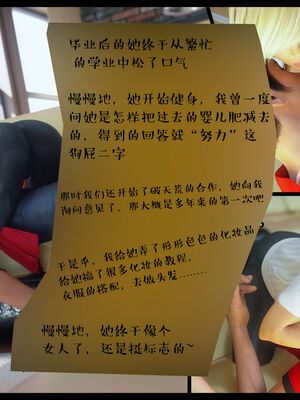 毕业后的她终于从繁忙
的学业中松了口气
慢慢地，她开始健身，我曾一度
问她是怎样把过去的婴儿肥减去
的，得到的回答就“努力”这
狗屁二字
那时我们还开始了破天荒的合作，她向我
询问意见了，那大概是多年来的第一次吧？
于是乎，我给她弄了形形色色的化妆品
给她搞了很多化妆的教程，
衣服的搭配，去做头发........
慢慢地，她终于像个
女人了，还是挺标志的~